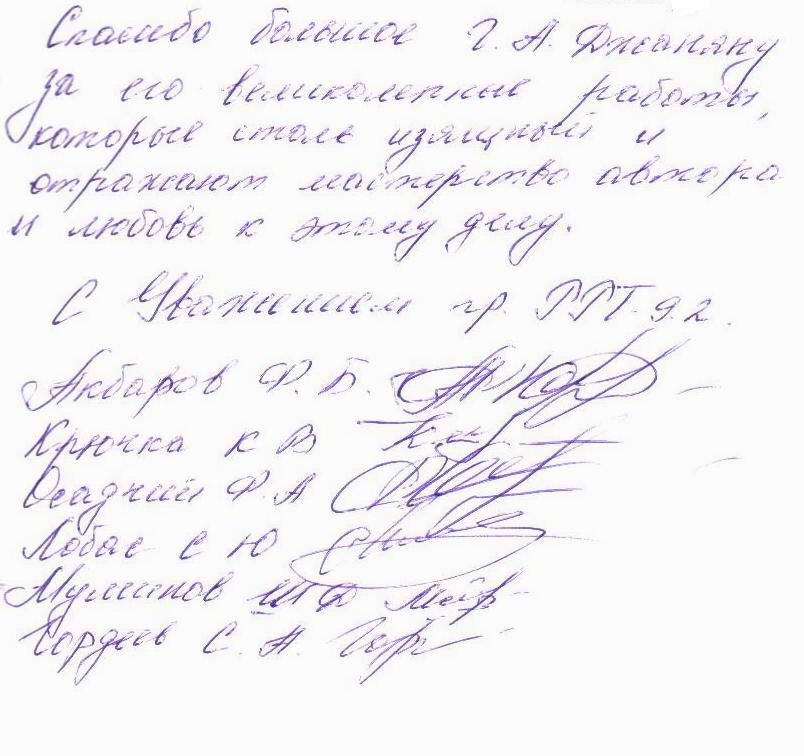 Спасибо большое Г. А. Джаняну
за его великолепные работы,
которые столь изящный и
отражают мастерство автора
и любовь к этому делу.
С Уважением гр. РРТ-9.2.
Акбаров Ф. Б.
Крючка К В
Осадчий Ф. А
Лобас С Ю
Муминов Ш Ф
Гордеев С. А.